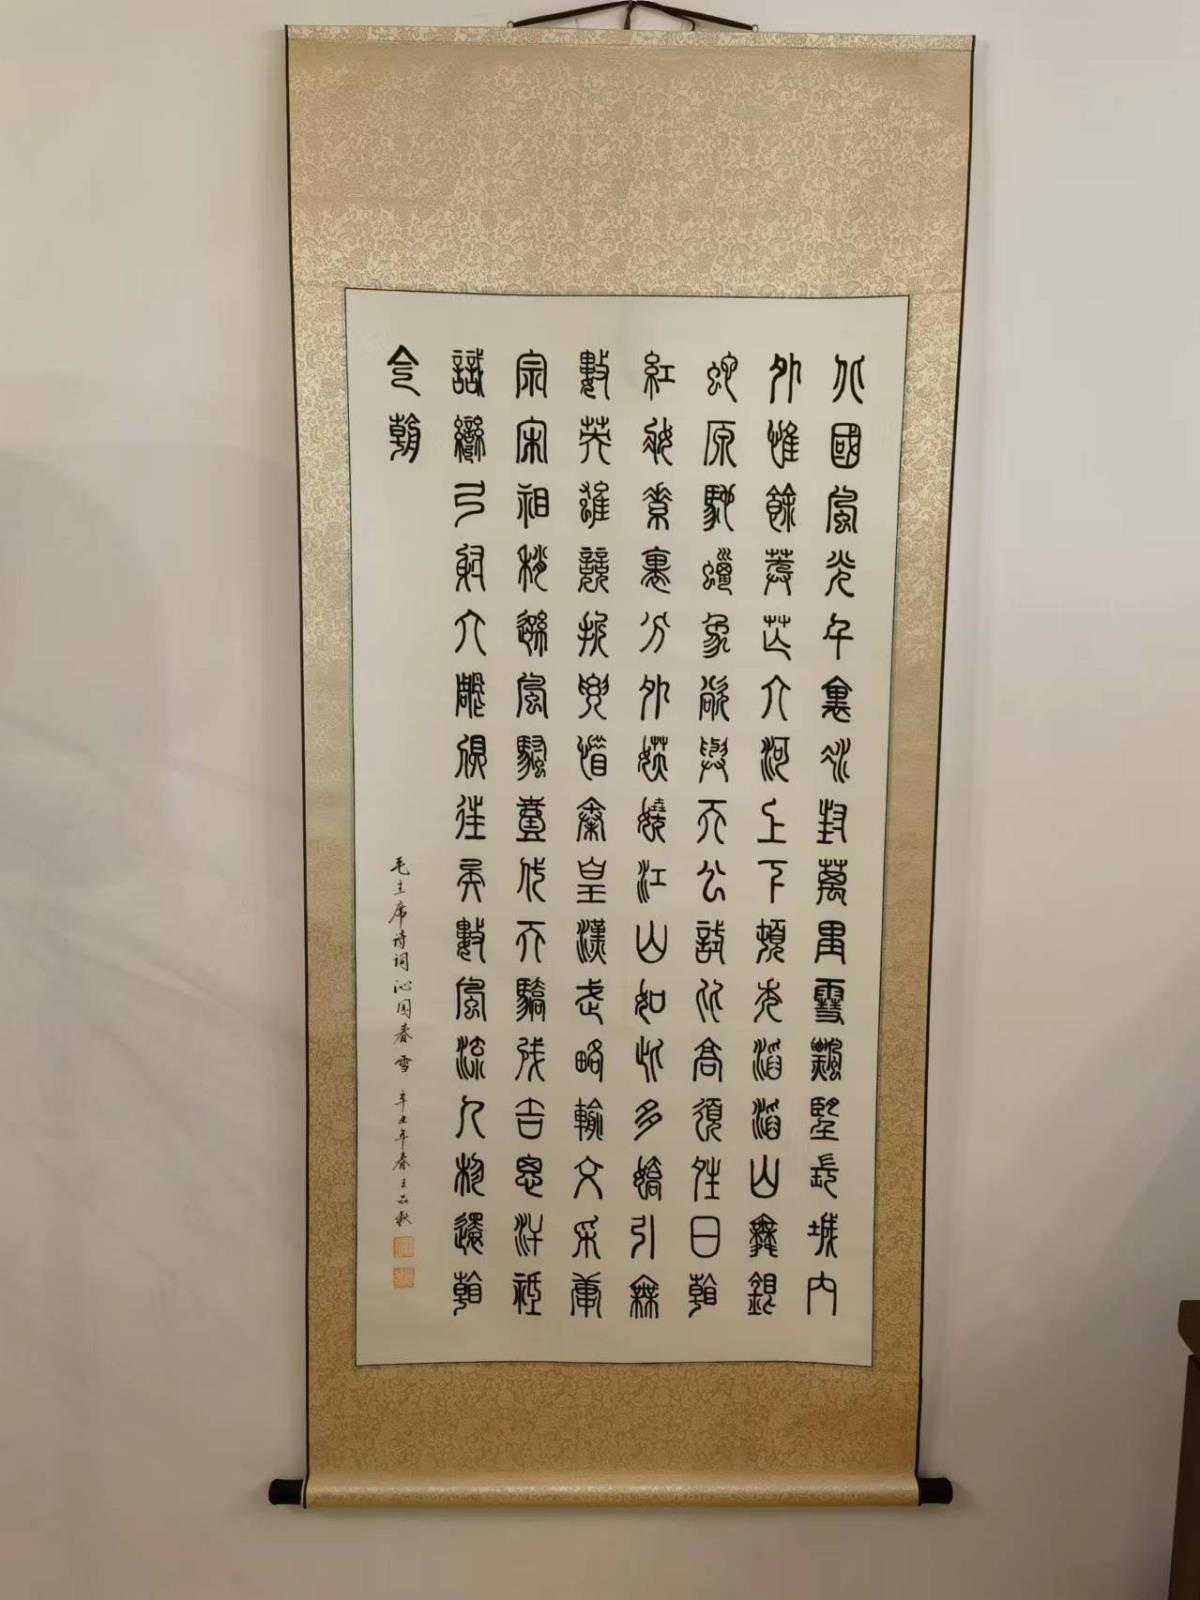 北國風光千裏冰封萬里雪飄望長城内
外惟餘莽芒大河上下頓失滔滔山舞銀
蛇原馳蠟象欲與天公試比高須晴日看
紅妝素裹分外妖嬈江山如此多嬌引無
數英雄競折腰惜秦皇漢武略輸文采唐
宗宋祖稍遜風騷壹代天驕成吉思汗衹
識彎弓射大雕俱往矣數風流人物還看
今朝
毛主席诗词沁园春雪 辛丑年春王品秋